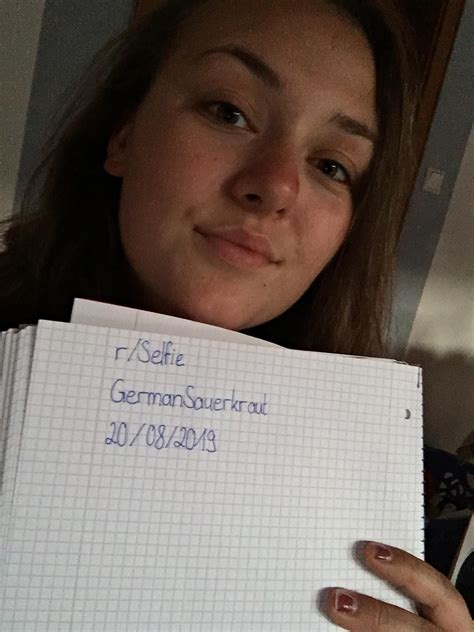 r/Selfie
GermanSauerkraut
20/08/2019